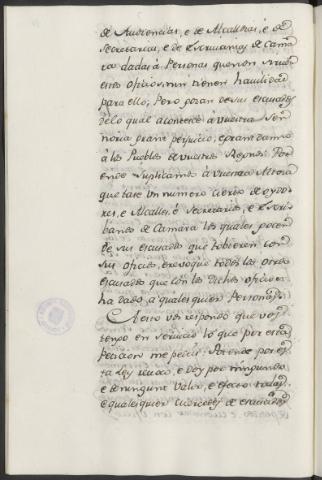 de Audiencias, e de Alcaldias, e de
Secretarias, e de Escrivanias de Cama
ra dadas à Personas que non sirven
estos oficios, nin tienen havilidad
para ello; Pero gozan de sus escusados
de lo qual acontece à vuestra Sen
noria grant perjuicio, e grant danno
à los Pueblos de vuestros Regnos: Por
ende suplicamos à vuestra Alteza
que tase un numero cierto de oydo
res, e Alcalles, è Secretarios, e Escri
banos de Camara los quales gocen
de sus escusados que tobieren con
sus oficios, e revoque todos los otros
escusados que con los dichos oficios
ha dado à qualesquier Personas.
A esto vos respondo que vos
tengo en servicio lo que por esta
peticion me pedis: Por ende por es
ta Ley revoco, e doy por ningunas
e de ningunt valor, e efecto todas,
e qualesquier mercedes de escusados